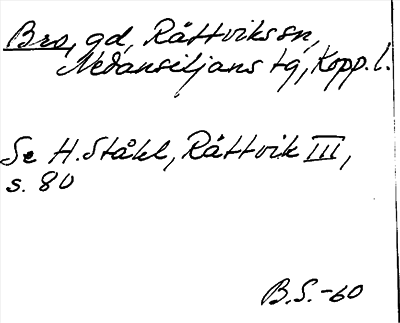 Bro, gd, Rättviks sn,
Nedansiljans tg, Kopp. l.
Se H. Ståhl, Rättvik III,
s. 80
B.S. -60